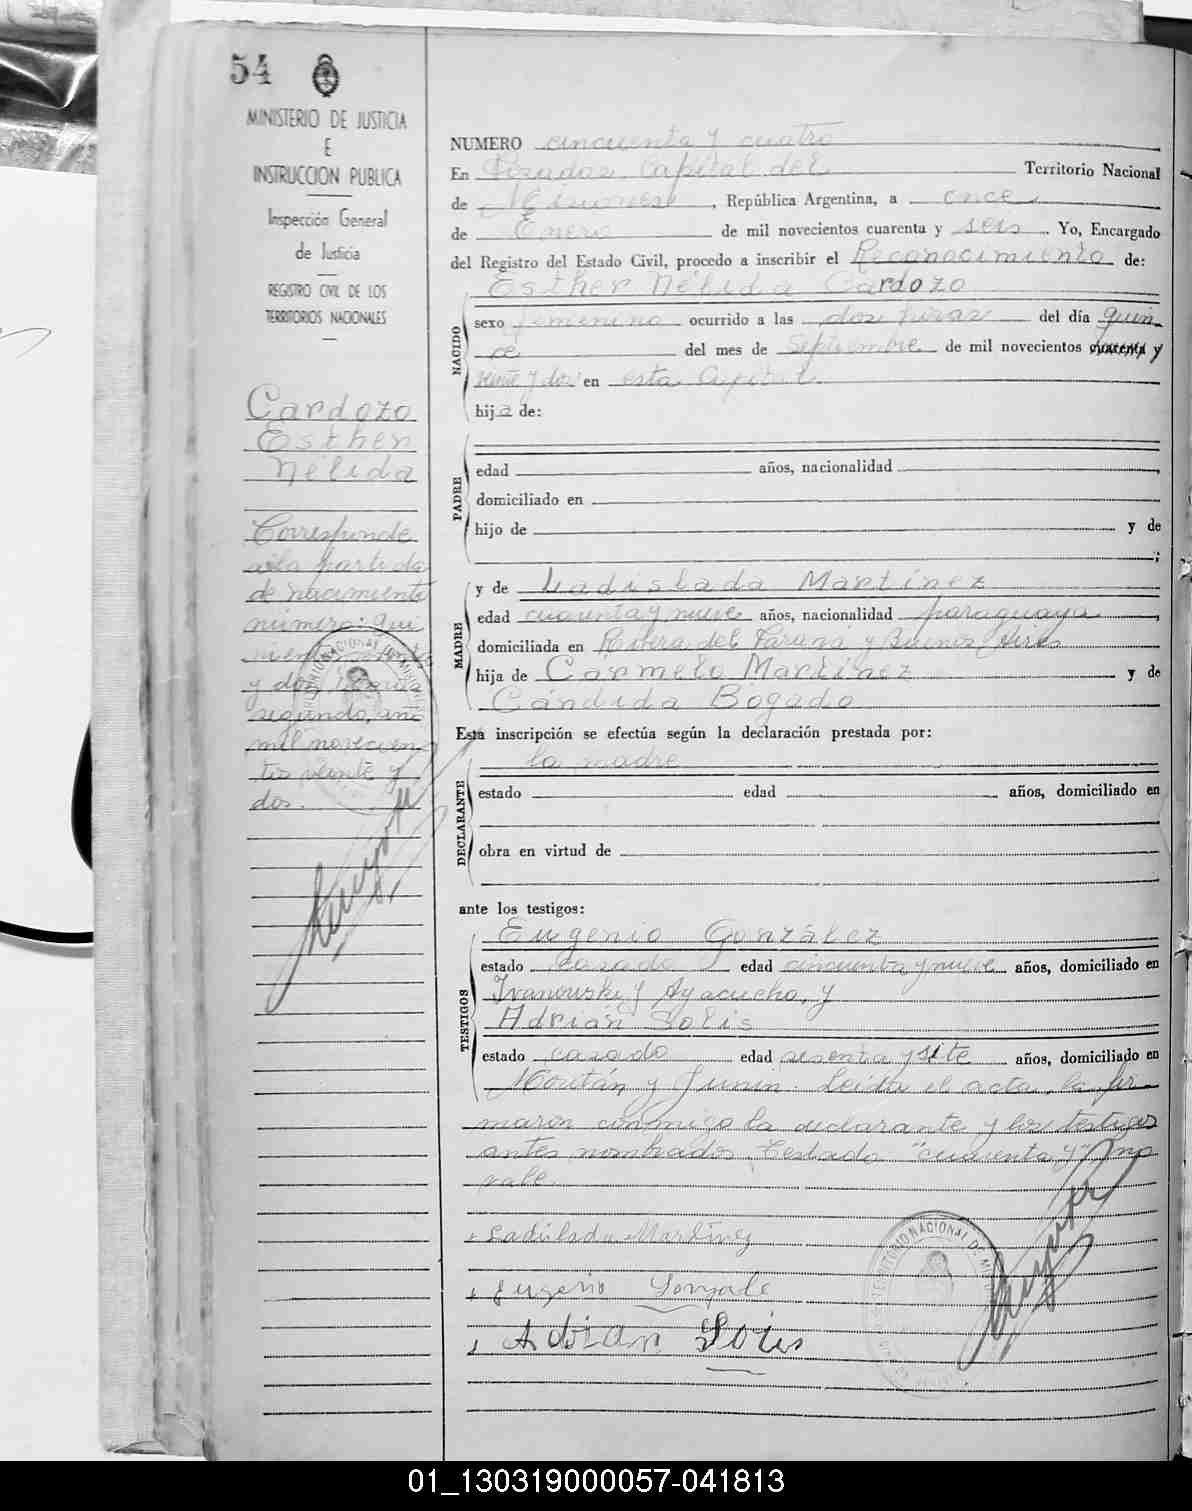 54
MINISTERIO DE JUSTICIA
E
INSTRUCCION PUBLICA
Inspección General
de Justicia
REGISTRO CIVIL DE LOS
TERRITORIOS NACIONALES
Cardozo
Esther
Nélida
Corresponde
a la partida
de nacimiento
número: qui
y dos,
segundo, año
mil novecien
tos veinte y
dos.
NUMERO cincuenta y cuatro
En Posadas Capital del Territorio Nacional
de Misiones, República Argentina, a once
de Enero de mil novecientos cuarenta y seis. Yo, Encargado
del Registro del Estado Civil, procedo a inscribir el Reconocimiento de:
Esther Nélida Cardozo
NACIDO
sexo femenino ocurrido a las dos horas del día quin
ce del mes de Septiembre de mil novecientos cuarenta y
veinte y dos en esta Capital.
hija de:
PADRE
edad años, nacionalidad ,
domiciliado en
hijo de y de
;
MADRE
y de Ladislada Martínez
edad cuarenta y nueve años, nacionalidad paraguaya
domiciliada en Rivera del Paraná y Buenos Aires
hija de Carmelo Martínez y de
Cándida Bogado
Esta inscripción se efectúa según la declaración prestada por:
la madre
DECLARANTE
estado edad años, domiciliado en
obra en virtud de
ante los testigos:
TESTIGOS
Eugenio González
estado casado edad cincuenta y nueve años, domiciliado en
Ivanowski y Ayacucho, y
Adrián Solis
estado casado edad sesenta y siete años, domiciliado en
y Junin. Leída el acta, la fir
maron conmigo la declarante y los testigos
antes nombrados. Testado "cuarenta y" no
vale.
Ladislada Martínez
Eugenio Gonzale
Adrian Solis
TERRITORIO NACIONAL DE MI
01_130319000057-041813